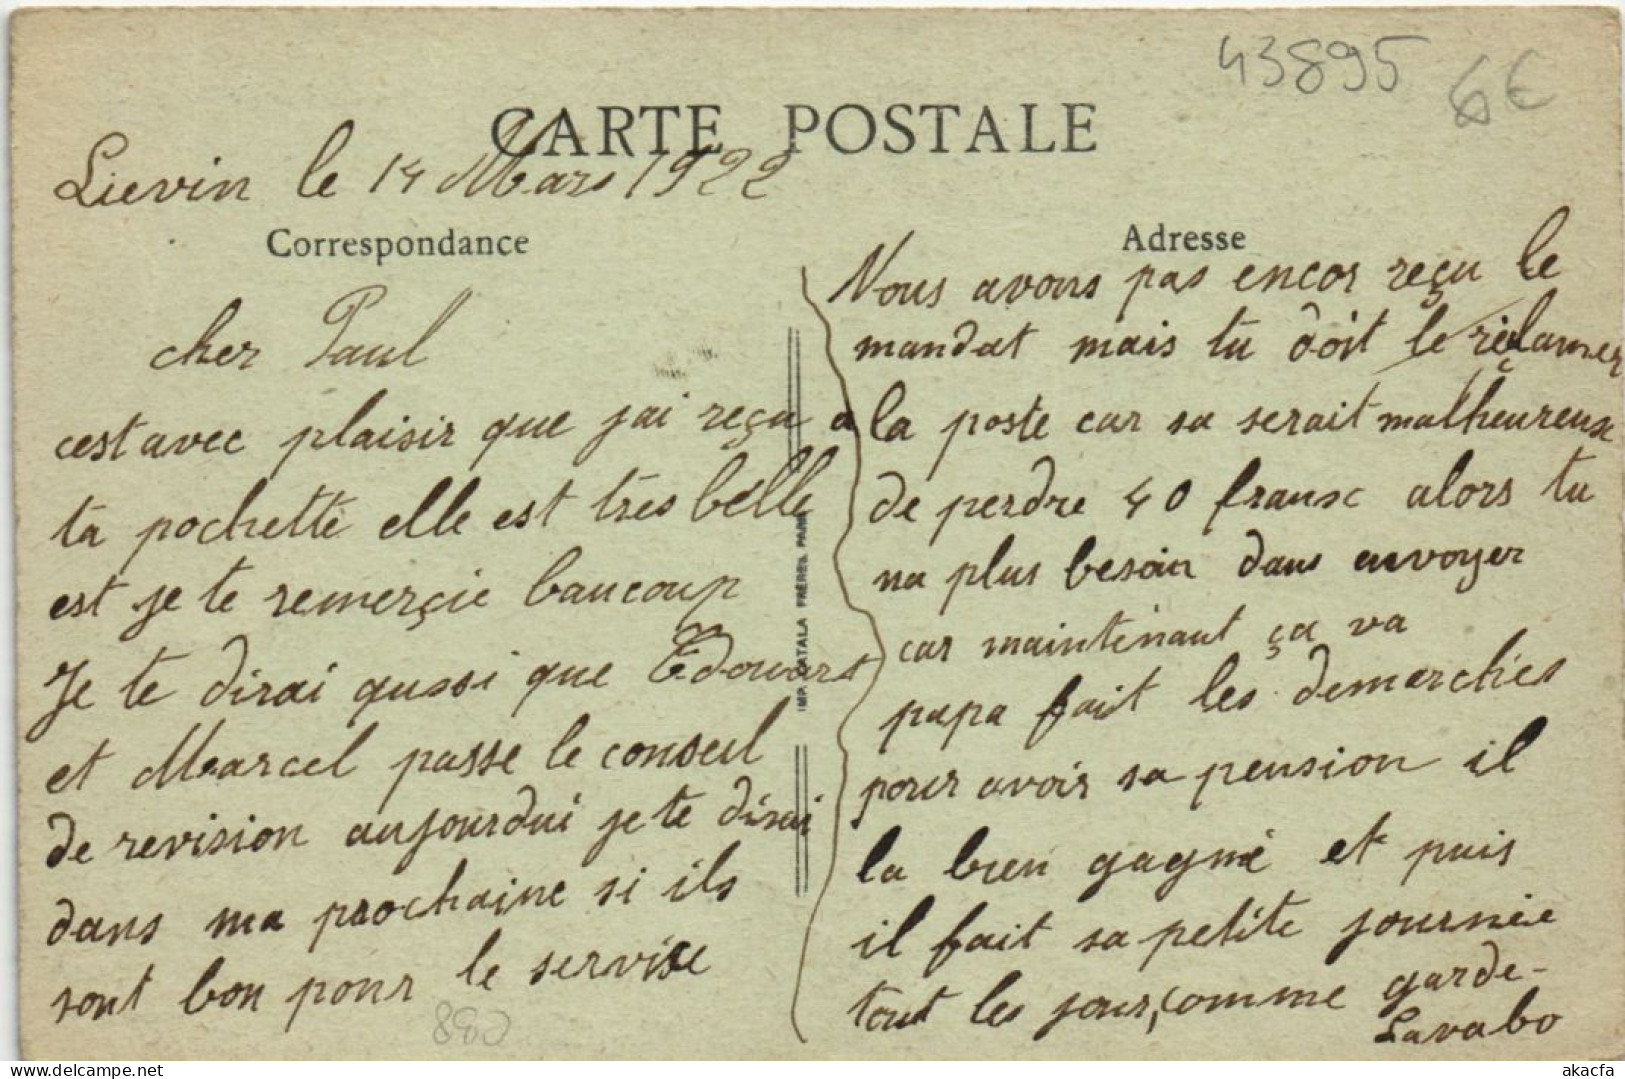 43895 6€
CARTE POSTALE
Lievin le 14 Mars 1922
Correspondance
cher Paul
cest avec plaisir que jai reçu
ta pochette elle est très belle
est je te remerçie baucoup
Je te dirai aussi que Edouart
et Marcel passe le conseil
de revision aujourdui je te dirai
dans ma prochaine si ils
sont bon pour le servise
880
IMP. CATALA FRÈRES, PARIS
Adresse
Nous avons pas encor reçu le
mandat mais tu doit le réclamer
a la poste car sa serait malheureux
de perdre 40 fransc alors tu
na plus besoin dans envoyer
car maintenant ça va
papa fait les demarches
pour avoir sa pension il
la bien gagné et puis
il fait sa petite journée
tout les jour, comme garde-
Lavabo
akacfa